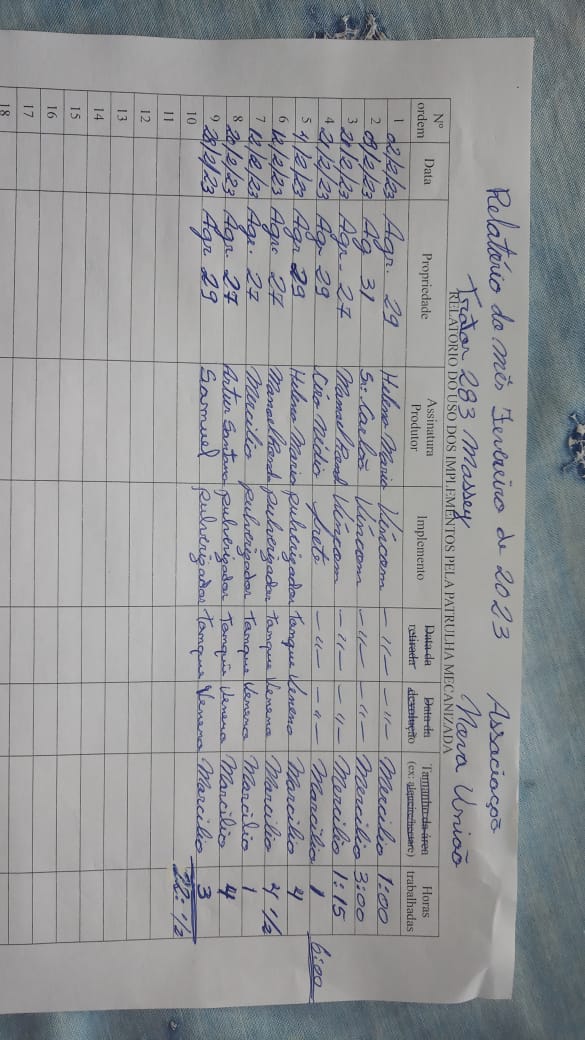 Relatório do mês Fevereiro de 2023 Associação
Trator 283 Massey Nova União
RELATÓRIO DO USO DOS IMPLEMENTOS PELA PATRULHA MECANIZADA
Nº ordem Data Propriedade Assinatura Produtor Implemento Data da retirada Data da devolução Tamanho da área (ex: alqueire/hectare) Horas trabalhadas
1 02/2/23 Agr. 29 Helena Maria Vincom -"- -"- Marcilio 1:00
2 09/2/23 Ag 31 Sr: Carlão Vincom -"- -"- Marcilio 3:00
3 21/2/23 Agr- 27 Manoel Vincom -"- -"- Marcilio 1:15
4 21/2/23 Agr 29 Nidio freto -"- -"- Marcilio 1 6:00
5 4/2/23 Agr 29 Helena Maria pulverizador Tanque Veneno Marcilio 4
6 12/2/23 Agr. 27 Manoel pulverizador Tanque Veneno Marcilio 4 1/2
7 12/2/23 Agr. 27 Marcilio pulverizador Tanque Veneno Marcilio 1
8 20/2/23 Agr. 27 Artur Santana pulverizador Tanque Veneno Marcilio 4
9 28/2/23 Agr 29 Samuel pulverizador Tanque Veneno Marcilio 3
10 22: 1/2
11
12
13
14
15
16
17
18